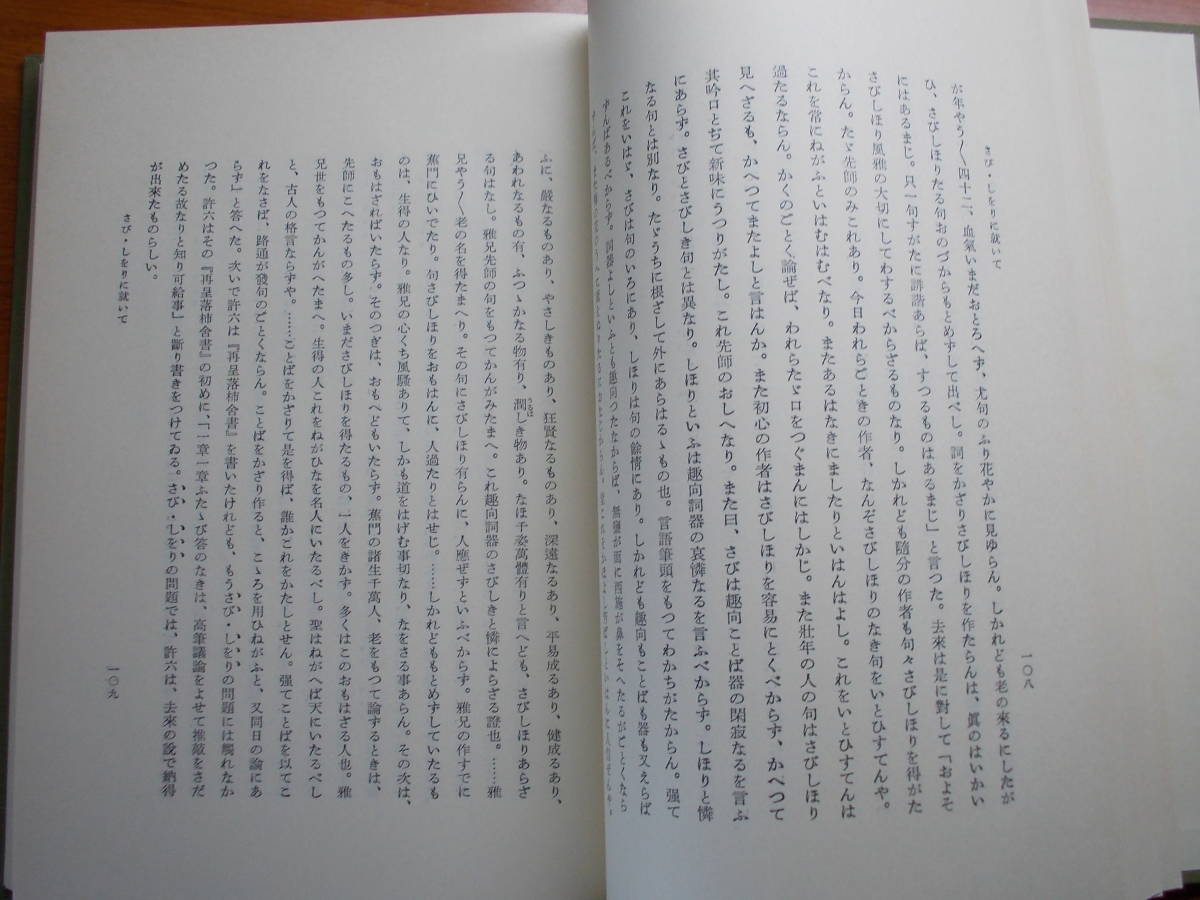 さび・しをりに就いて
一〇八
が年やう〱四十二、血氣いまだおとろへず、尤句のふり花やかに見ゆらん。しかれども老の來るにしたが
ひ、さびしほりたる句おのづからもとめずして出べし。詞をかざりさびしほりを作たらんは、眞のはいかい
にはあるまじ。只一句すがたに誹諧あらば、すつるものはあるまじ」と言つた。去來は是に對して「およそ
さびしほり風雅の大切にしてわするべからざるものなり。しかれども隨分の作者も句々さびしほりを得がた
からん。たゞ先師のみこれあり。今日われらごときの作者、なんぞさびしほりのなき句をいとひすてんや。
これを常にねがふといはむはむべなり。またあるはなきにましたりといはんはよし。これをいとひすてんは
過たるならん。かくのごとく論ぜば、われらたゞ口をつぐまんにはしかじ。また壯年の人の句はさびしほり
見へざるも、かへつてまたよしと言はんか。また初心の作者はさびしほりを容易にとくべからず、かへつて
其吟口とぢて新味にうつりがたし。これ先師のおしへなり。また曰、さびは趣向ことば器の閑寂なるを言ふ
にあらず。さびとさびしき句とは異なり。しほりといふは趣向詞器の哀憐なるを言ふべからず。しほりと憐
なる句とは別なり。たゞうちに根ざして外にあらはるゝもの也。言語筆頭をもつてわかちがたからん。强て
これをいはゞ、さびは句のいろにあり、しほりは句の餘情にあり。しかれども趣向もことばも器も又えらば
ずんばあるべからず。詞器よしといふとも趣向つたなからば、無鹽が面に西施が鼻をそへたるがごとくなら
ふに、嚴なるものあり、やさしきものあり、狂賢なるものあり、深遠なるあり、平易成るあり、健成るあり、
あわれなるもの有、ふつゝかなる物有り、潤しき物あり。なほ千姿萬體有りと言へども、さびしほりあらざ
る句はなし。雅兄先師の句をもつてかんがみたまへ。これ趣向詞器のさびしきと憐によらざる證也。……雅
兄やう〱老の名を得たまへり。その句にさびしほり有らんに、人應ぜずといふべからず。雅兄の作すでに
蕉門にひいでたり。句さびしほりをおもはんに、人過たりとはせじ。……しかれどももとめずしていたるも
のは、生得の人なり。雅兄の心くち風騷ありて、しかも道をはげむ事切なり、なをさる事あらん。その次は、
おもはざればいたらず。そのつぎは、おもへどもいたらず。蕉門の諸生千萬人、老をもつて論ずるときは、
先師にこへたるもの多し。いまださびしほりを得たるもの、一人をきかず。多くはこのおもはざる人也。雅
兄世をもつてかんがへたまへ。生得の人これをねがひなを名人にいたるべし。聖はねがへば天にいたるべし
と、古人の格言ならずや。……ことばをかざりて是を得ば、誰かこれをかたしとせん。强てことばを以てこ
れをなさば、路通が發句のごとくならん。ことばをかざり作ると、こゝろを用ひねがふと、又同日の論にあ
らず」と答へた。次いで許六は『再呈落柿舍書』を書いたけれども、もうさび・しをりの問題には觸れなか
つた。許六はその『再呈落柿舍書』の初めに、「一章一章ふたゝび答のなきは、高筆議論をよせて推敲をさだ
めたる故なりと知り可給事」と斷り書きをつけてゐる。さび・しをりの問題では、許六は、去來の說で納得
が出來たものらしい。
さび・しをりに就いて
一〇九